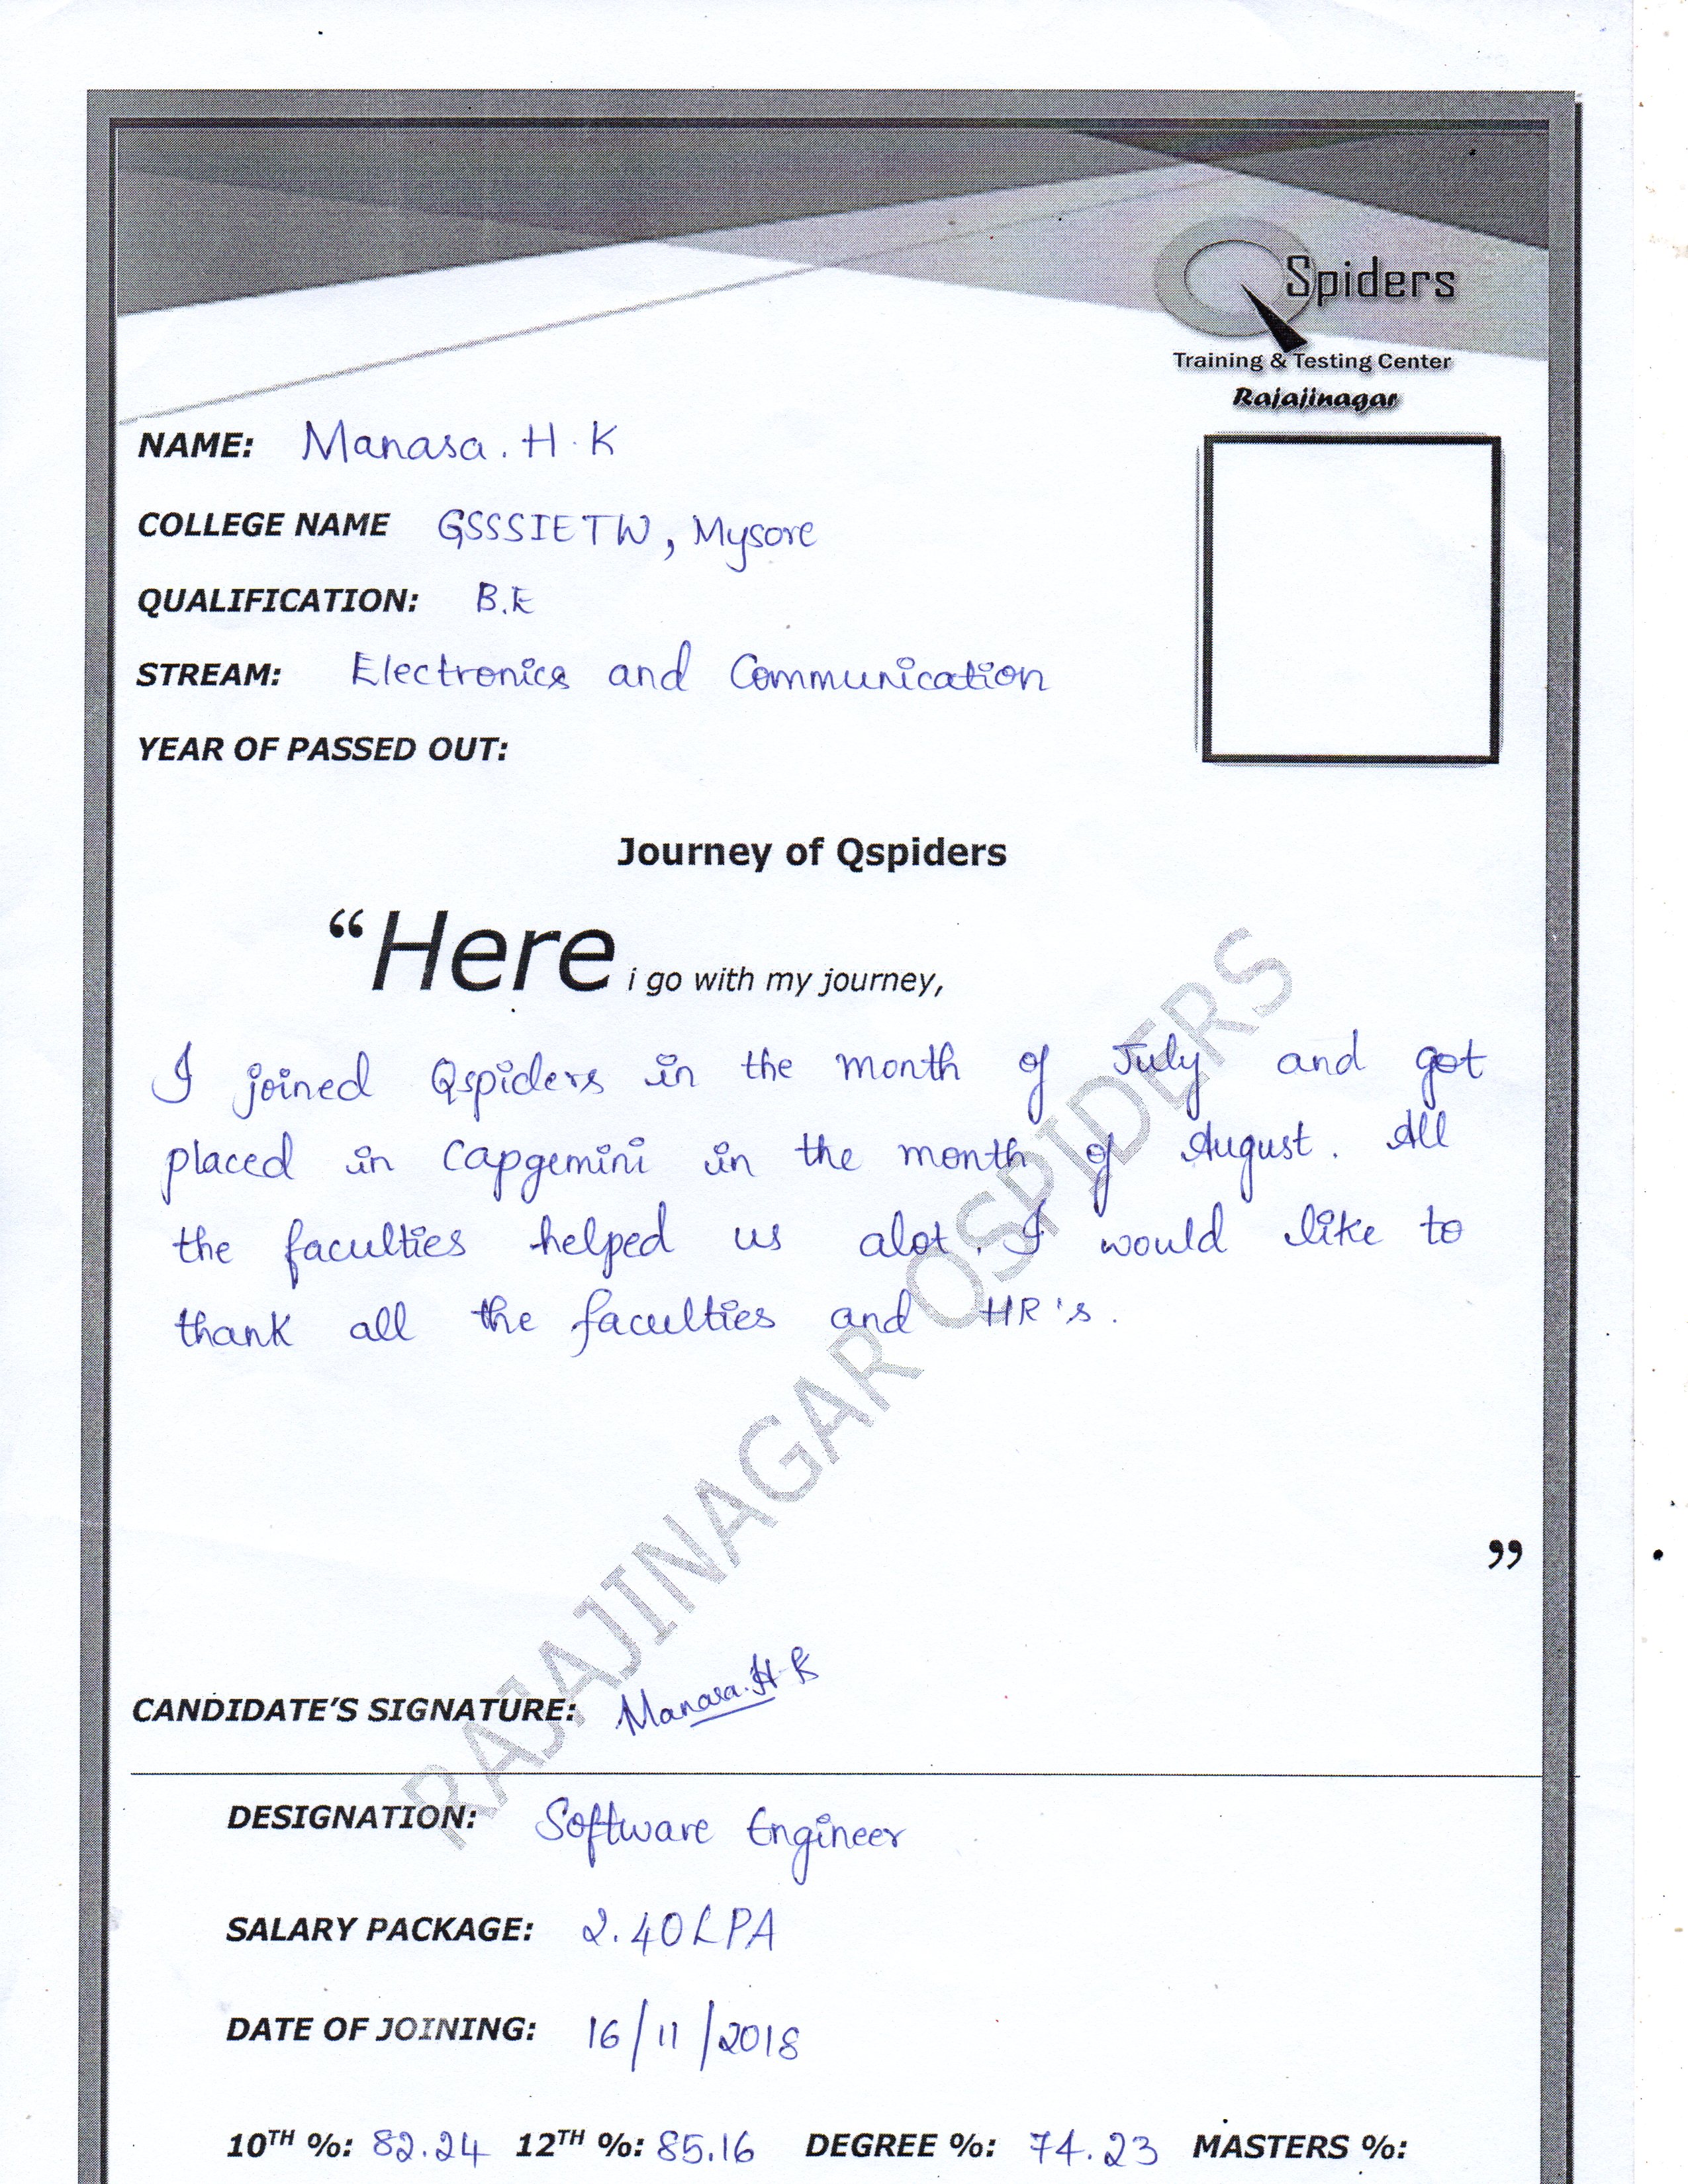 QSpiders
Training & Testing Center
Rajajinagar
NAME: Manasa. H. K
COLLEGE NAME GSSSIETW, Mysore
QUALIFICATION: B.E
STREAM: Electronics and Communication
YEAR OF PASSED OUT:
Journey of Qspiders
“Here i go with my journey,
I joined Qspiders in the month of July and got
placed in Capgemini in the month of August. All
the faculties helped us alot. I would like to
thank all the faculties and HR's.
”
RAJAJINAGAR QSPIDERS
CANDIDATE’S SIGNATURE: Manasa. H. K
DESIGNATION: Software Engineer
SALARY PACKAGE: 2.40 LPA
DATE OF JOINING: 16/11/2018
10TH %: 82.24 12TH %: 85.16 DEGREE %: 74.23 MASTERS %: